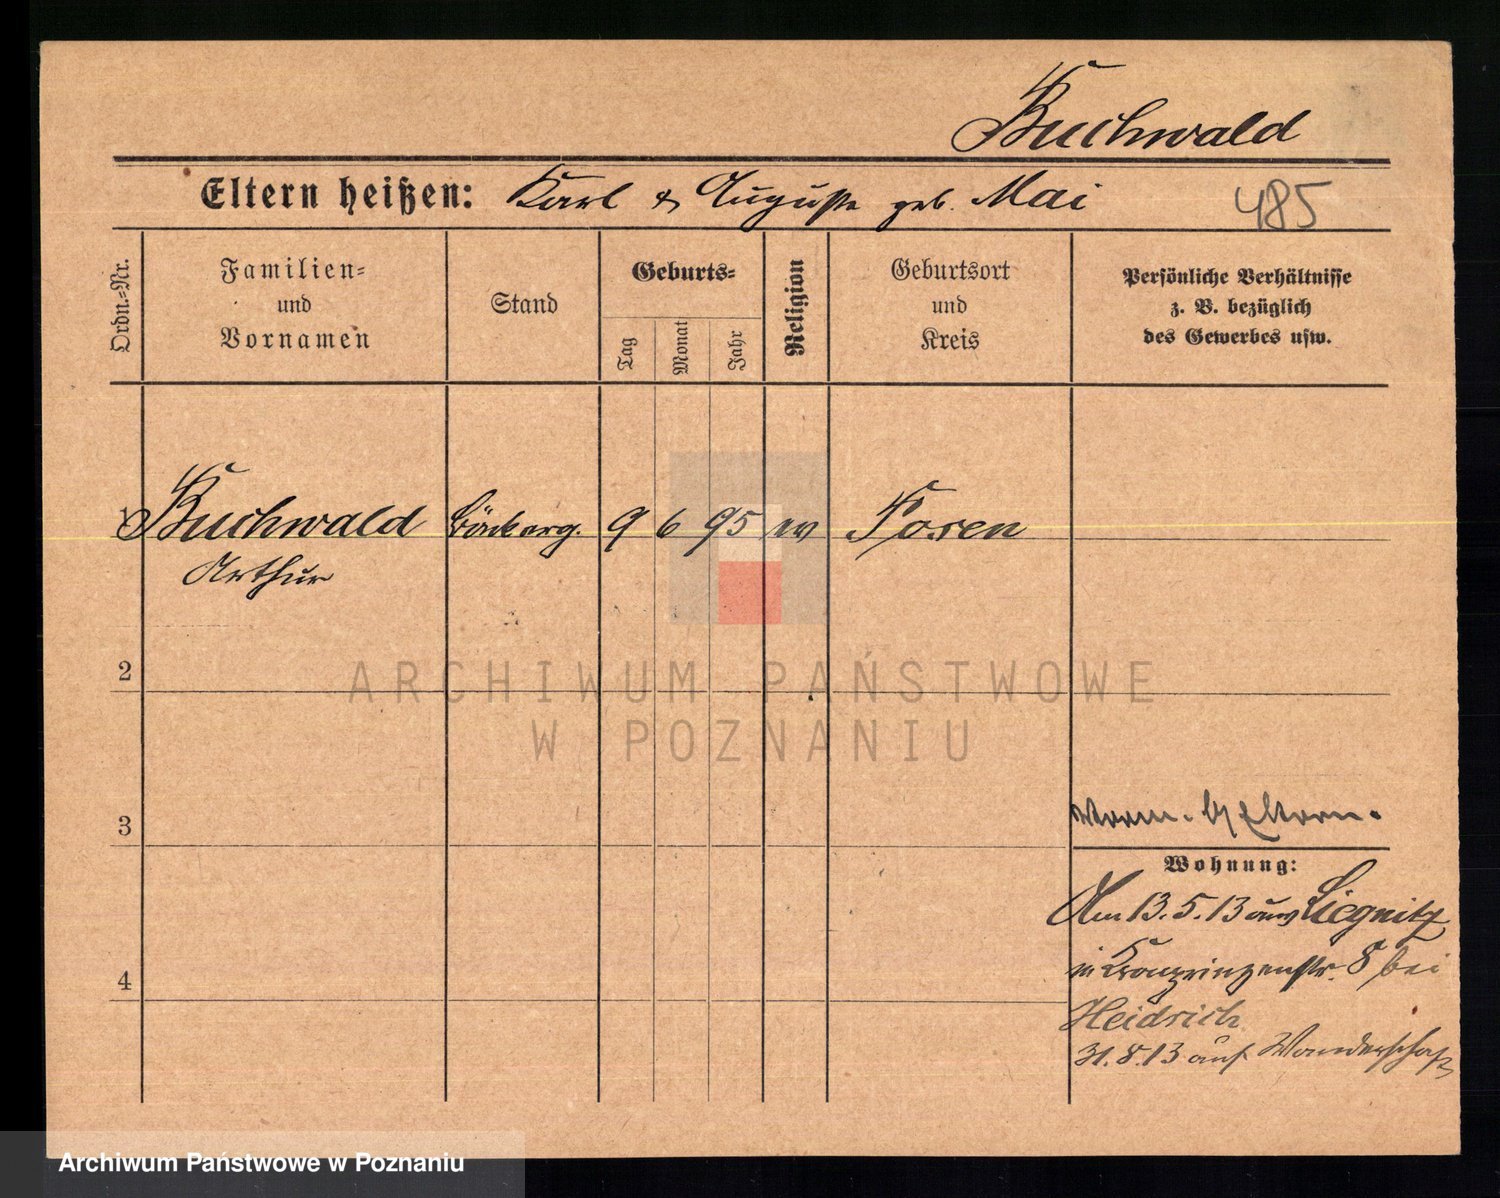 Buchwald
Eltern heißen: Karl & Auguste geb. Mai
485
Ordn.-Nr.
Familien-
und
Vornamen
Stand
Geburts-
Tag
Monat
Jahr
Religion
Geburtsort
und
Kreis
Persönliche Verhältnisse
z. B. bezüglich
des Gewerbes usw.
1 Buchwald 9 6 95 ev Posen
Arthur
2
3
4
Eltern.
Wohnung:
Am 13.5.13 aus Liegnitz
in Kronprinzenstr. 8 bei
Heidrich
31.8.13 auf Wanderschaft
ARCHIWUM PAŃSTWOWE
W POZNANIU
Archiwum Państwowe w Poznaniu